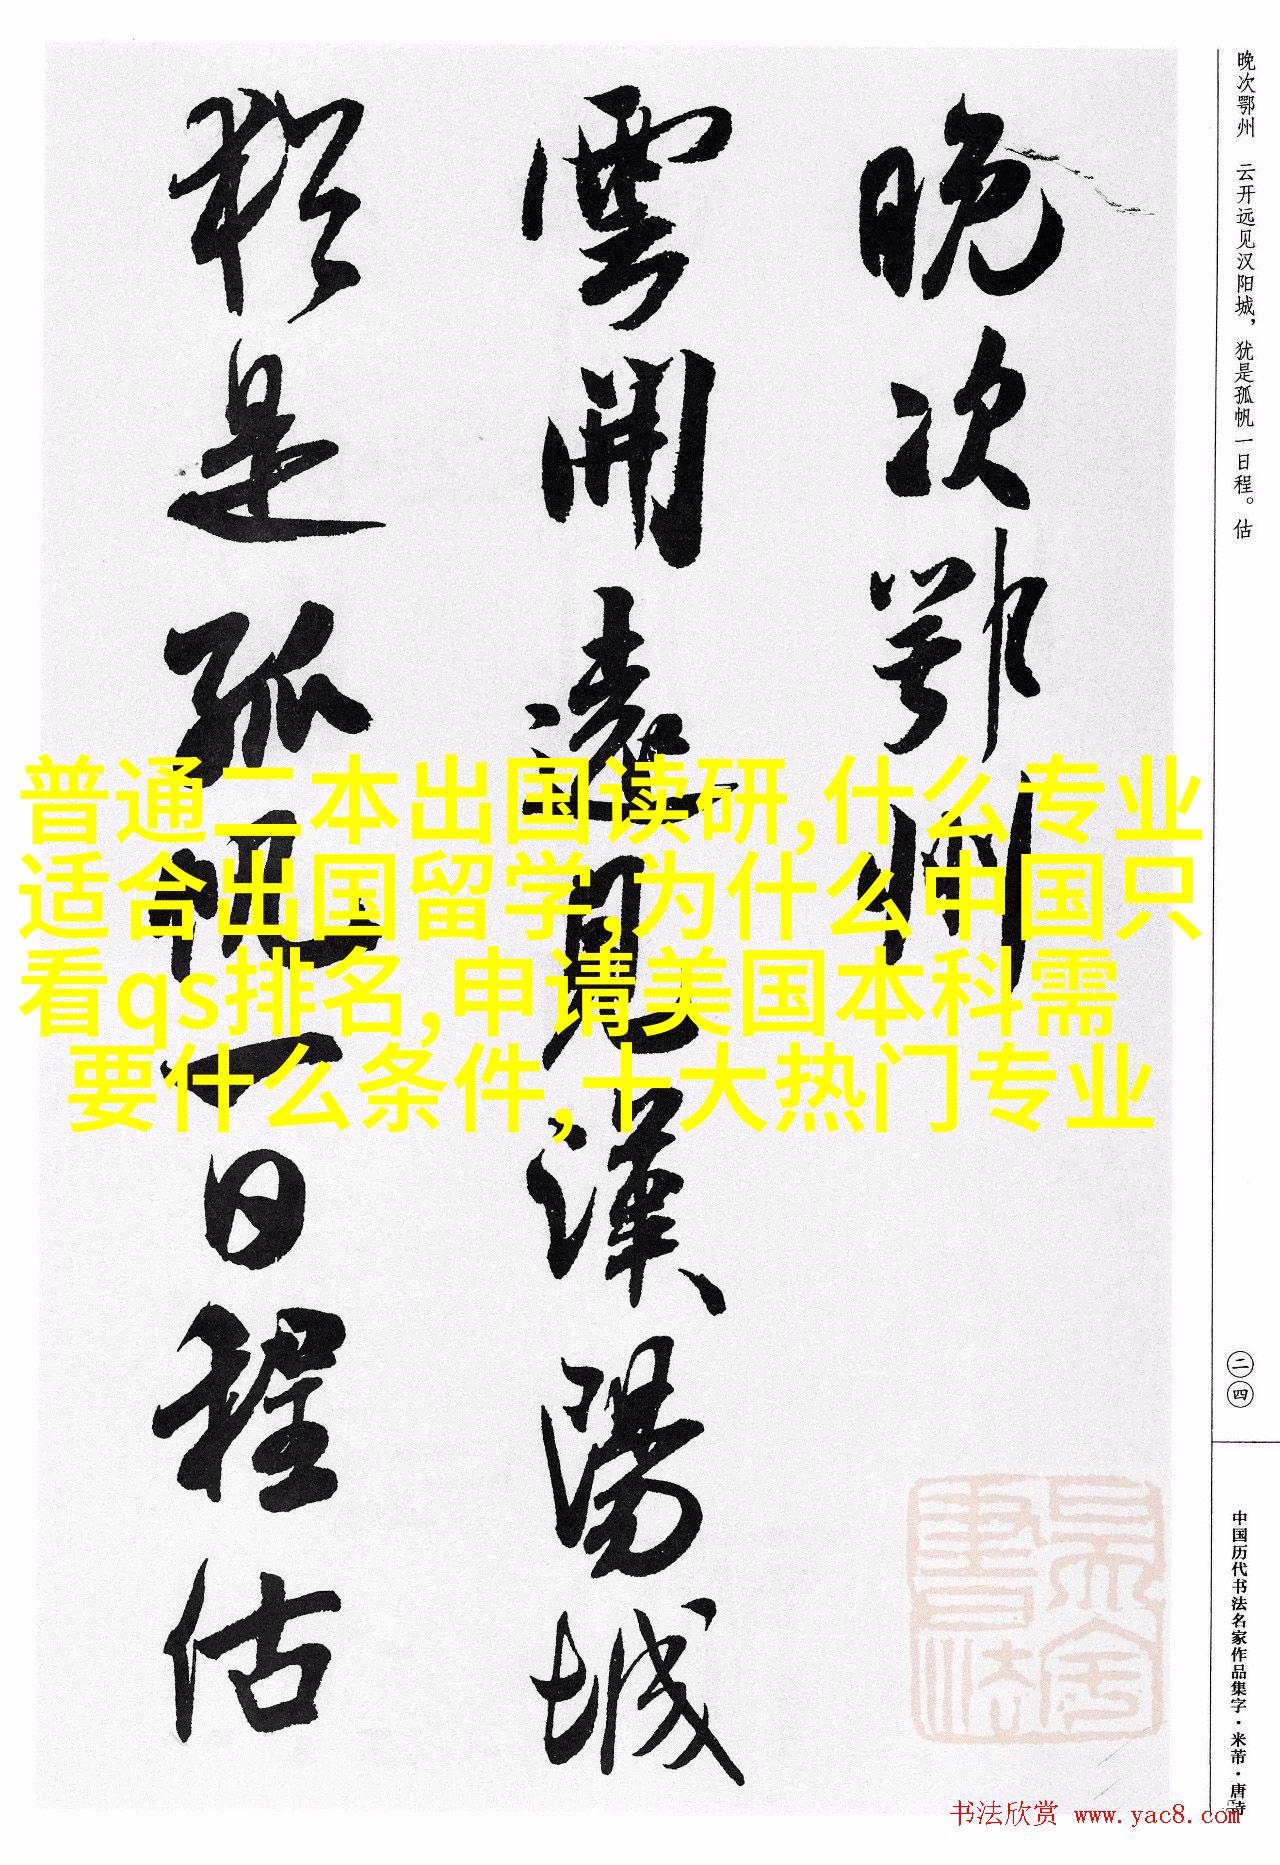 晚次鄂州
雲開遠見漢陽城
猶是孤帆一日程估
晚次鄂州 云开远见汉阳城，犹是孤帆一日程。估
二四
中国历代书法名家作品集字·米芾·唐诗
普通二本出国读研,什么专业
适合出国留学,为什么中国只
看qs排名,申请美国本科需
要什么条件,十大热门专业
书法欣赏 www.yac8.com